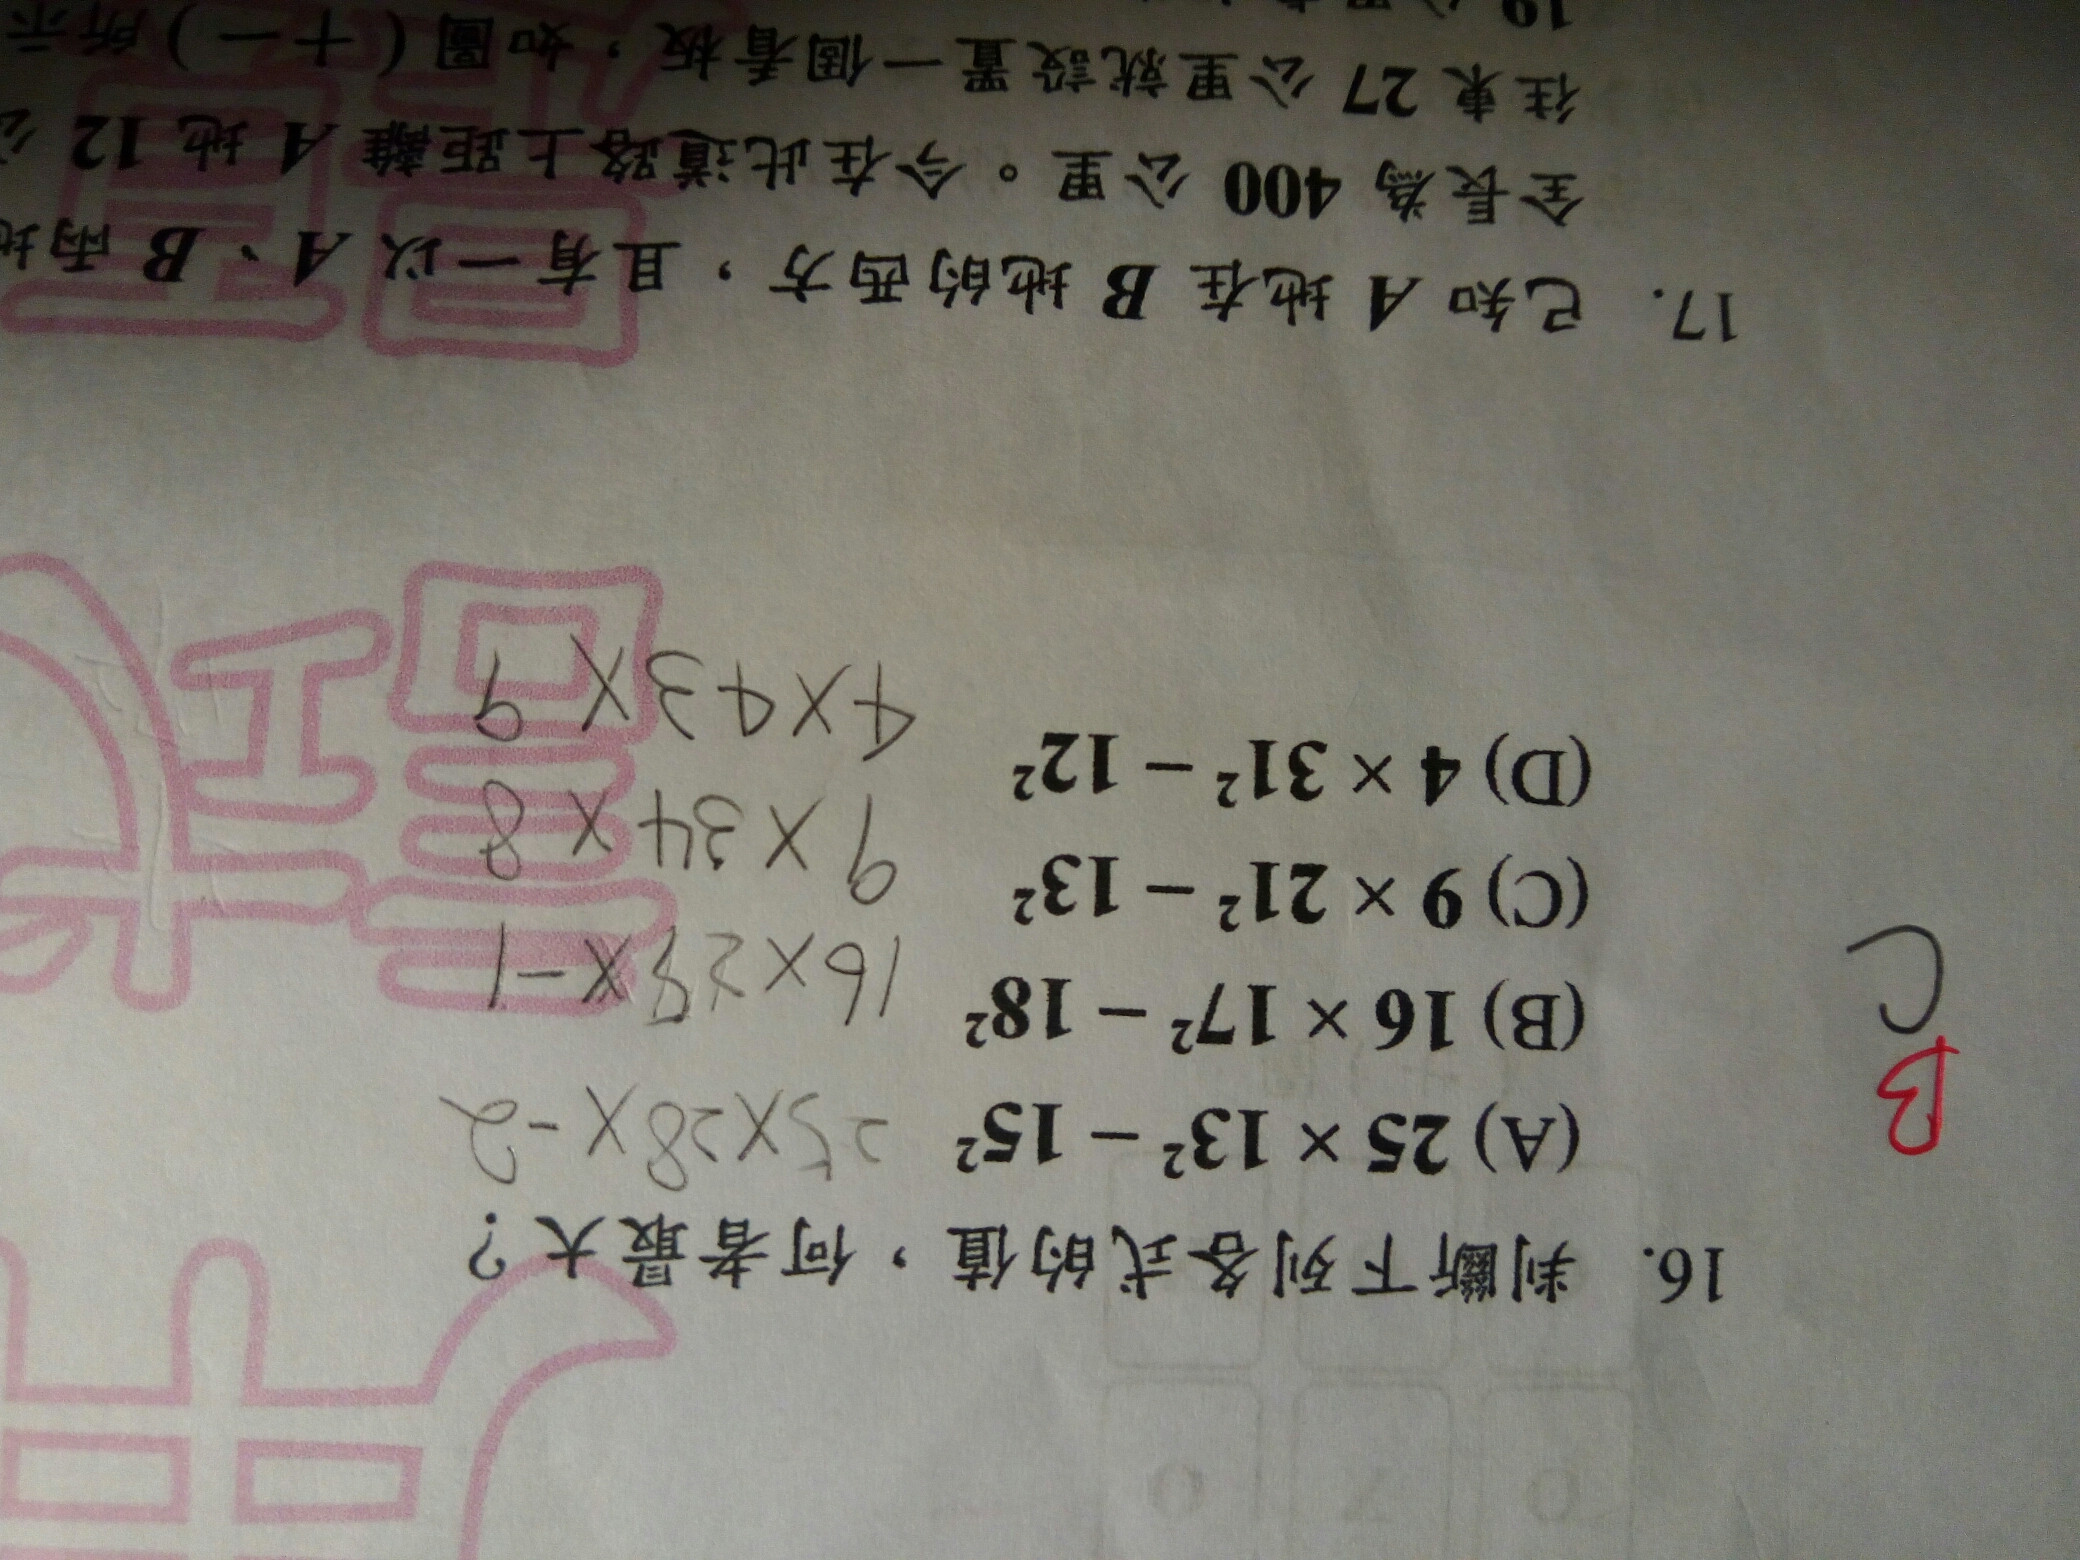 16. 判斷下列各式的值，何者最大？
B
C
(A) 25 × 13² − 15² 25×28×-2
(B) 16 × 17² − 18² 16×2 ×-1
(C) 9 × 21² − 13² 9×34×8
(D) 4 × 31² − 12² 4×43×9
17. 已知 A 地在 B 地的西方，且有一以 A、B 兩地
全長為 400 公里。今在此道路上距離 A 地 12 公
往東 27 公里就設置一個看板，如圖(十一)所示
19